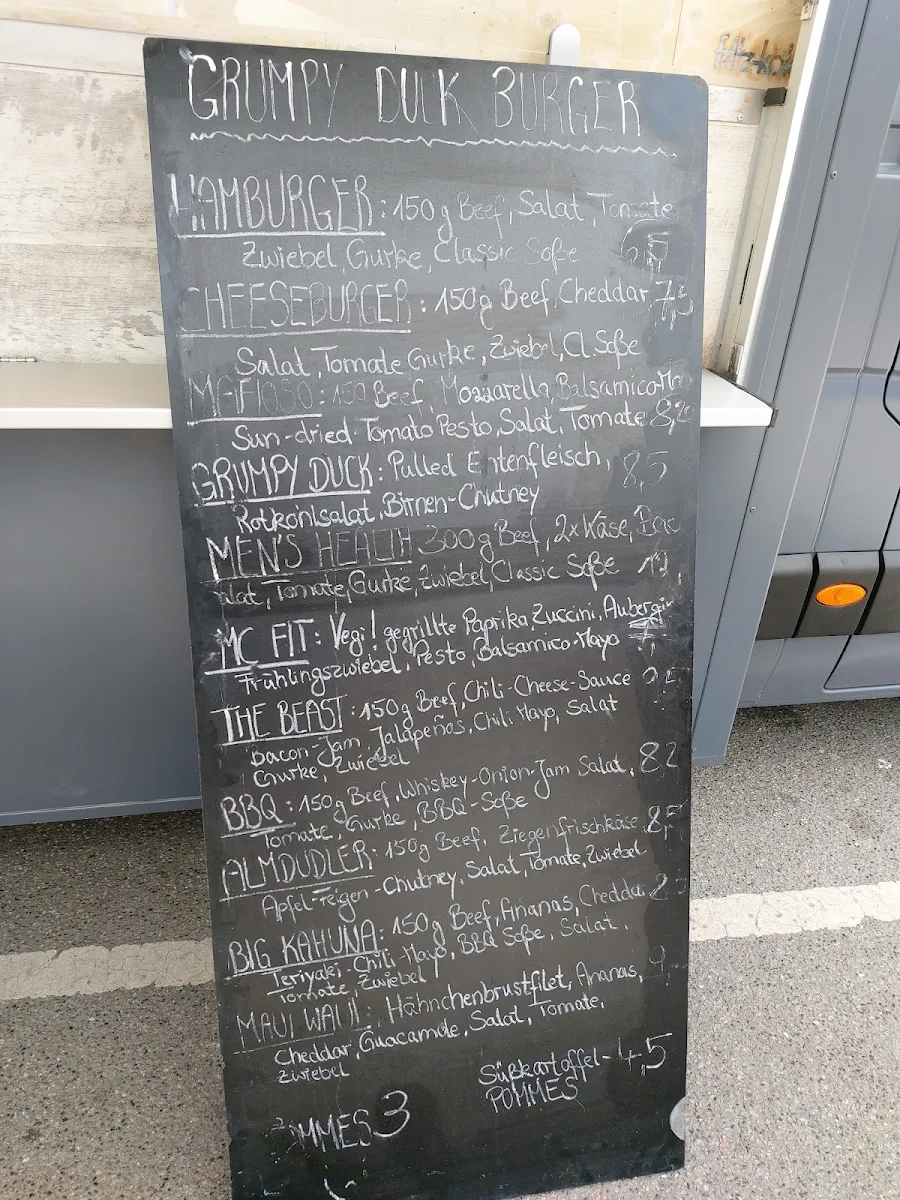 GRUMPY DUCK BURGER
HAMBURGER: 150g Beef, Salat, Tomate
Zwiebel, Gurke, Classic Soße 6,5
CHEESEBURGER: 150g Beef, Cheddar 7,5
Salat, Tomate Gurke, Zwiebel, Cl. Soße
MAFIOSO: 150 Beef, Mozzarella, Balsamico-Ma
Sun-dried Tomato Pesto, Salat, Tomate 8,2
GRUMPY DUCK: Pulled Entenfleisch, 8,5
Rotkohlsalat, Birnen-Chutney
MEN'S HEALTH 300g Beef, 2x Käse, Bac
lat, Tomate, Gurke, Zwiebel, Classic Soße 12,
MC FIT: Vegi! gegrillte Paprika Zuccini, Aubergin
Frühlingszwiebel, Pesto, Balsamico-Mayo
THE BEAST: 150g Beef, Chili-Cheese-Sauce
Bacon-Jam, Jalapeños, Chili Mayo, Salat
Gurke, Zwiebel
BBQ: 150g Beef, Whiskey-Onion-Jam Salat, 8,2
Tomate, Gurke, BBQ-Soße
ALMDUDLER: 150g Beef, Ziegenfrischkäse 8,5
Apfel-Feigen-Chutney, Salat, Tomate, Zwiebel
BIG KAHUNA: 150g Beef, Ananas, Chedda
Teriyaki-Chili-Mayo, BBQ Soße, Salat,
Tomate, Zwiebel
MAUI WAUI: Hähnchenbrustfilet, Ananas, 9,
Cheddar, Guacamole, Salat, Tomate,
Zwiebel
Süßkartoffel- 4,5
POMMES
POMMES 3